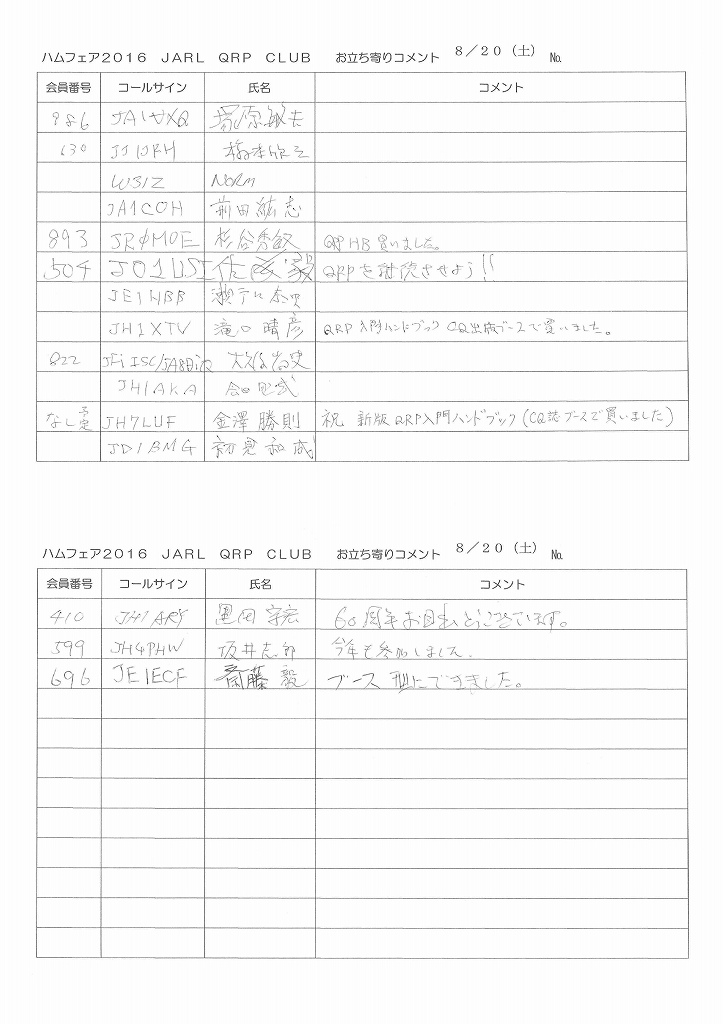 ハムフェア2016 JARL QRP CLUB お立ち寄りコメント 8/20(土) №
会員番号 コールサイン 氏名 コメント
986 塚原敏夫
130
W3IZ NORM
JA1COH 前田紘志
893 JRØMOE 杉谷秀敏 QRP HB 買いました。
504 JO1USI QRPを させよう!!
JE1HBB
JH1XTV 滝口晴彦 QRP入門ハンドブック CQ出版ブースで買いました。
822
JH1AKA
なし 予定 JH7LUF 金澤勝則 祝 新版QRP入門ハンドブック(CQ誌ブースで買いました)
JD1BMG 和成
ハムフェア2016 JARL QRP CLUB お立ち寄りコメント 8/20(土) №
会員番号 コールサイン 氏名 コメント
410 JH1ARY 黒田 60周年おめでとうございます。
599 JH4PHW 坂井志郎 今年も参加しました.
696 JE1ECF 斎藤毅 ブース できました。